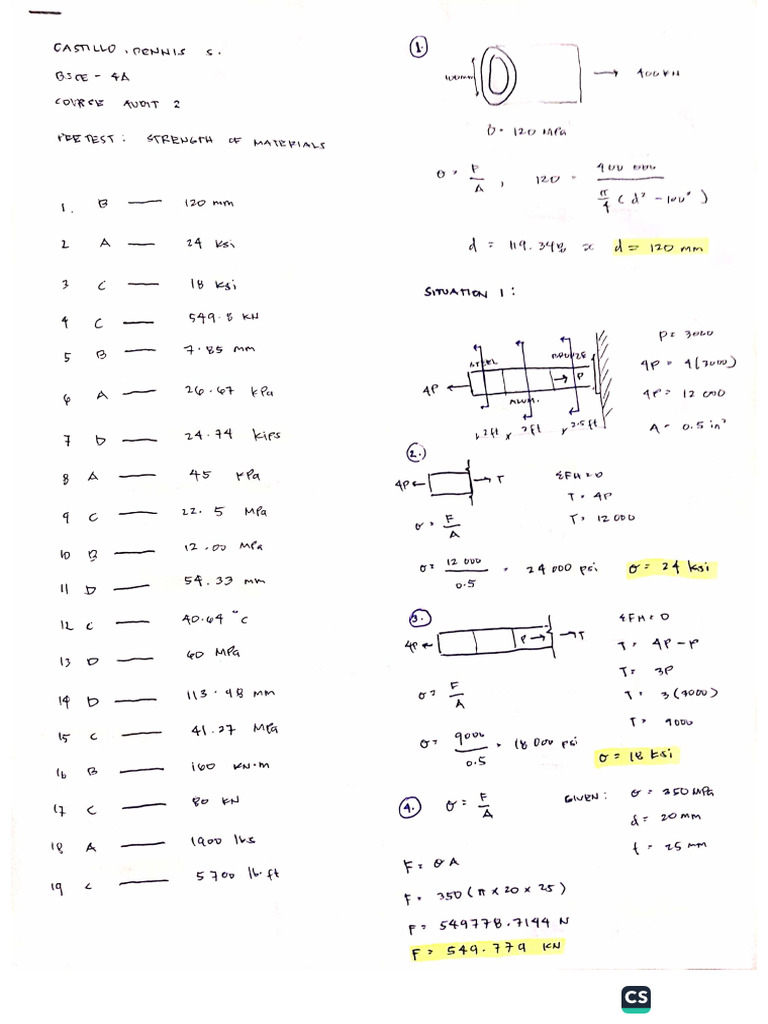 CASTILLO, DENNIS S.
BSCE - 4A
COURSE AUDIT 2
PRETEST: STRENGTH OF MATERIALS
1. B — 120 mm
2 A — 24 ksi
3 C — 18 ksi
4 C — 549.8 KN
5 B — 7.85 mm
6 A — 26.67 kPa
7 D — 24.74 kips
8 A — 45 kPa
9 C — 22.5 MPa
10 B — 12.00 MPa
11 D — 54.33 mm
12 C — 40.64 °C
13 D — 60 MPa
14 D — 113.98 mm
15 C — 41.27 MPa
16 B — 160 KN·m
17 C — 80 KN
18 A — 1900 lbs
19 C — 5700 lb·ft
1.
100mm
400KN
σ = 120 MPa
σ = F/A , 120 = 400 000 / π/4 (d² - 100²)
d = 119.348 ≈ d = 120 mm
SITUATION 1:
STEEL
BRONZE
4P
P
ALUM.
2ft 2ft 2.5ft
P = 3000
4P = 4(3000)
4P = 12 000
A = 0.5 in²
2.)
4P T
ΣFH = 0
T = 4P
T = 12 000
σ = F/A
σ = 12 000 / 0.5 = 24 000 psi σ = 24 ksi
3.
4P P T
ΣFH = 0
T = 4P - P
T = 3P
T = 3(3000)
T = 9000
σ = F/A
σ = 9000 / 0.5 = 18 000 psi
σ = 18 ksi
4. σ = F/A
GIVEN: σ = 350 MPa
d = 20 mm
t = 25 mm
F = σA
F = 350 (π x 20 x 25)
F = 549778.7144 N
F = 549.779 KN
CS